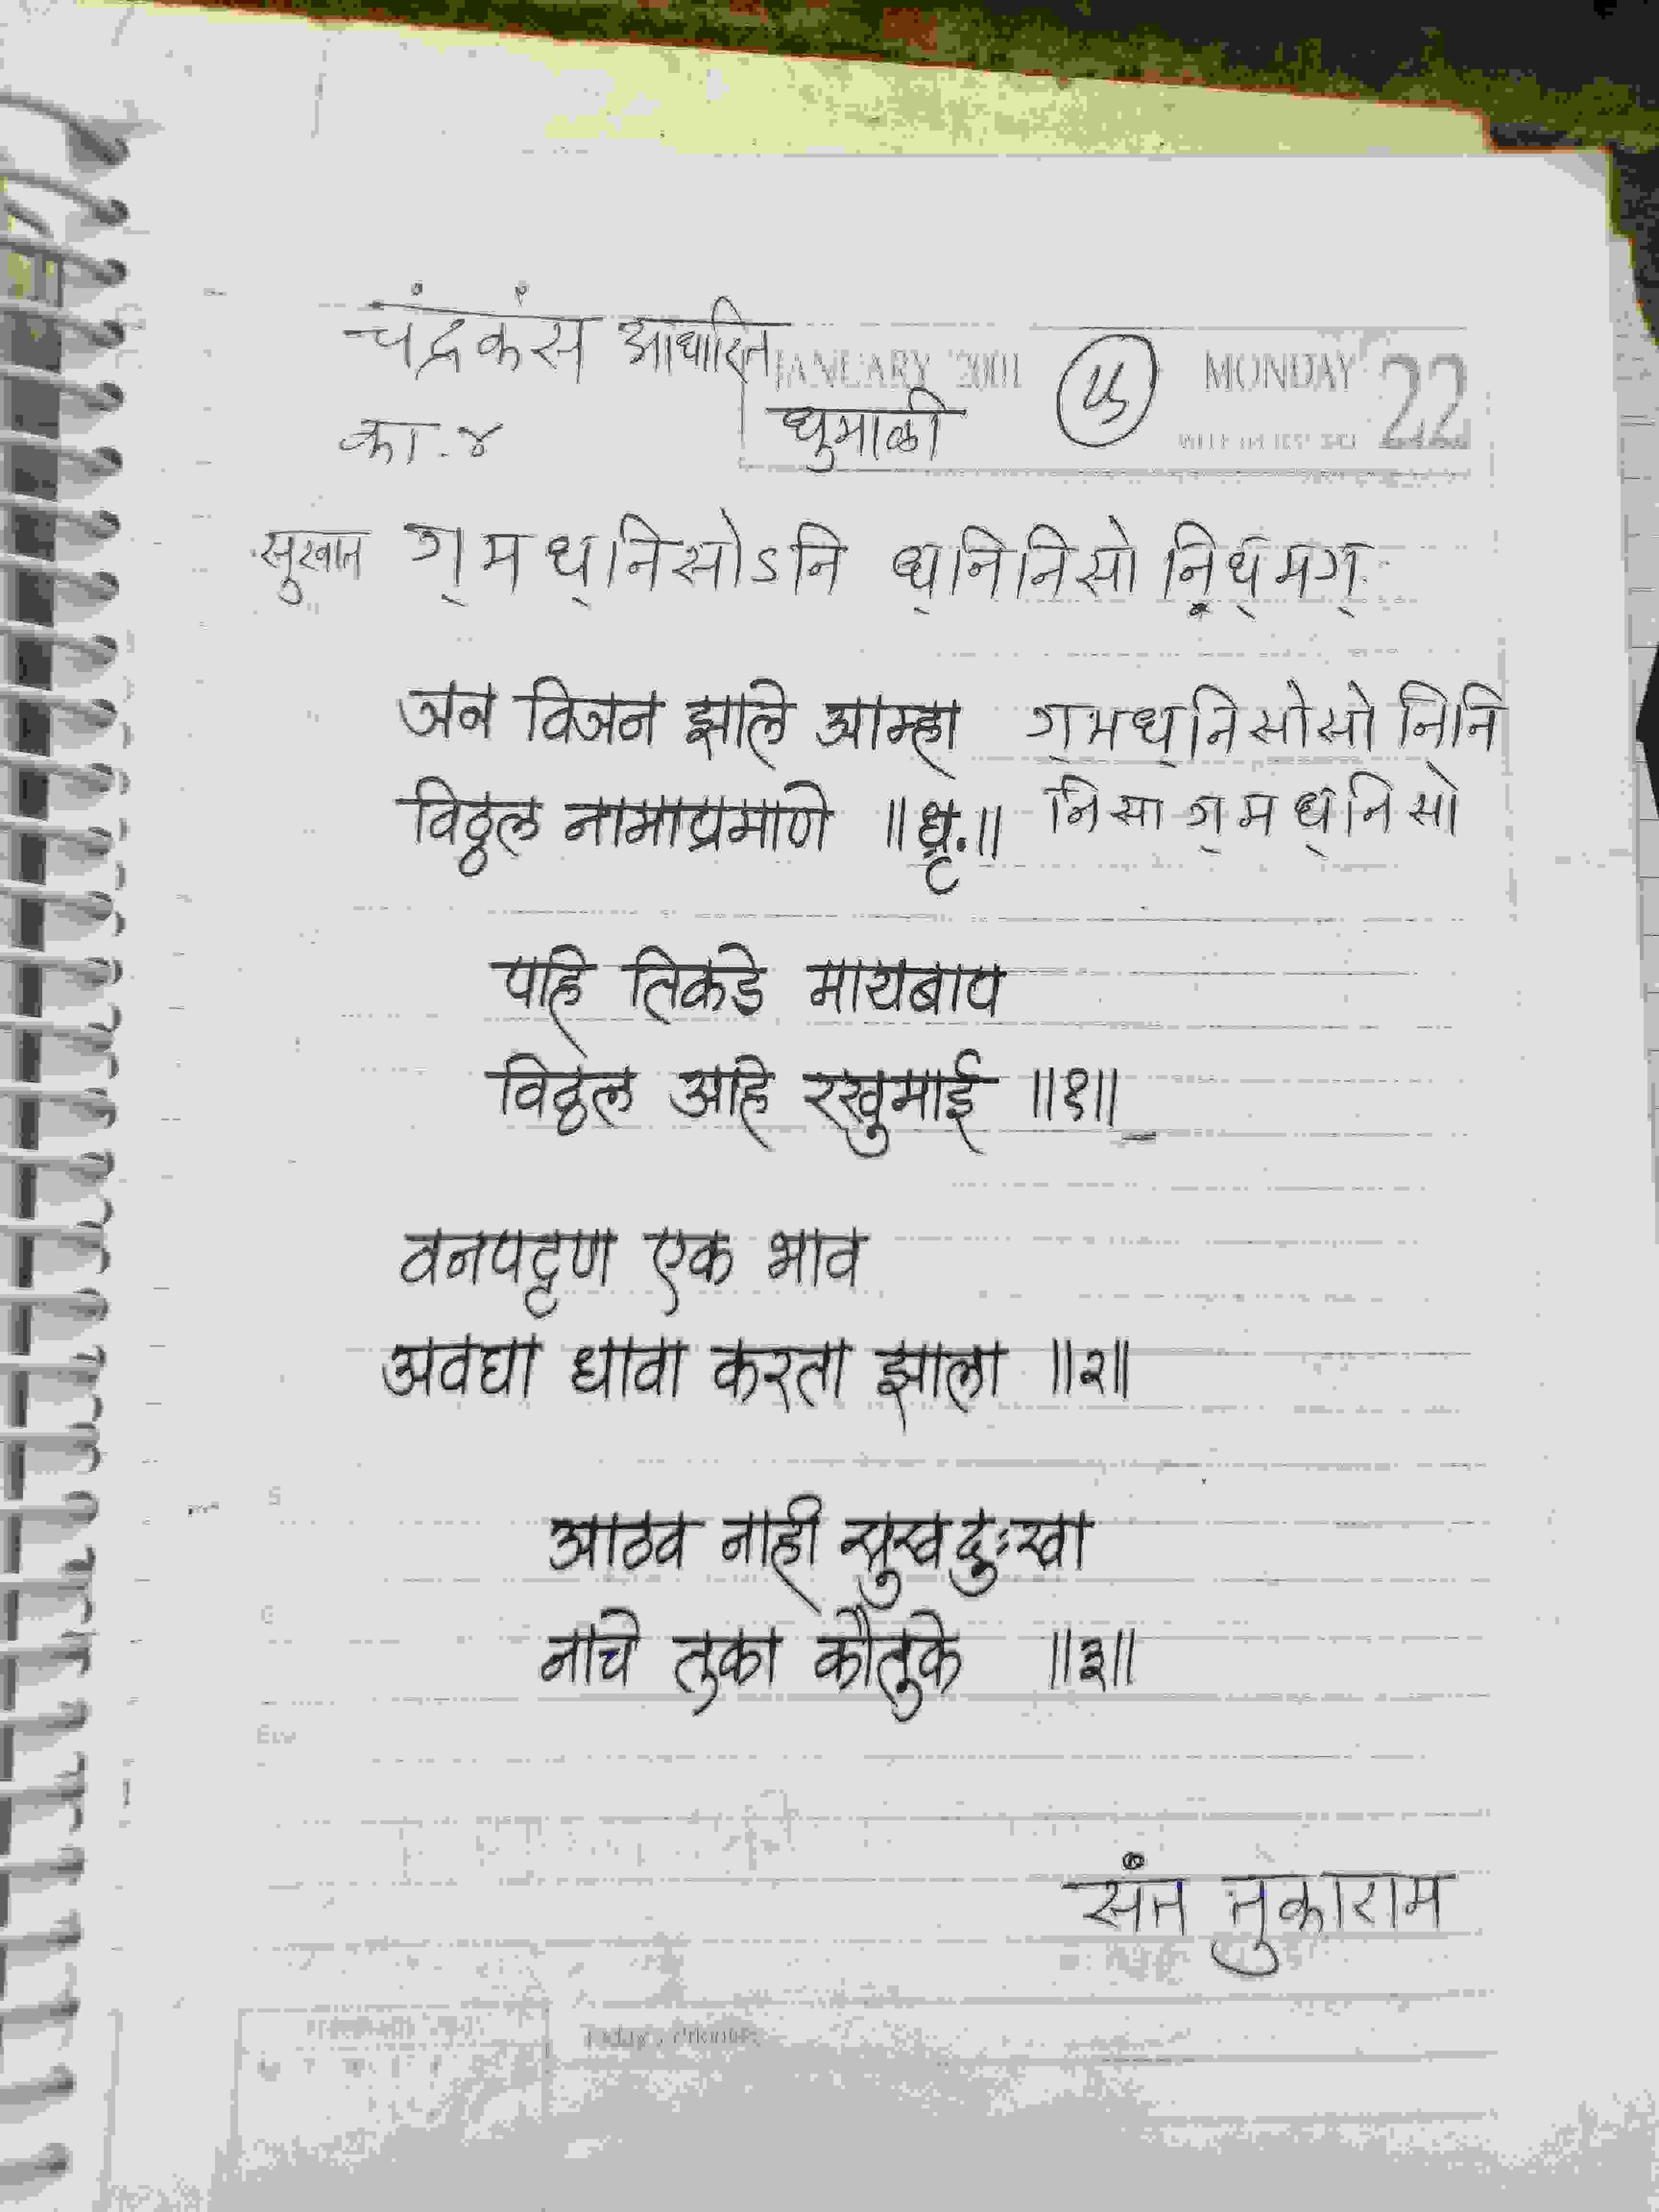 चंद्रकंस आधारित JANUARY 2001 ५ MONDAY 22
का. ४ धुमाळी
सुरवात ग॒ म ध॒ नि सां ऽ नि ध॒ नि नि सां नि ध॒ म ग॒
जन विजन झाले आम्हा ग॒ म ध॒ नि सां सां नि नि
विठ्ठल नामाप्रमाणे ॥ धृ. ॥ नि सा ग॒ म ध॒ नि सां
पाहे तिकडे मायबाप
विठ्ठल आहे रखुमाई ॥१॥
वनपट्टण एक भाव
अवघा धावा करता झाला ॥२॥
आठव नाही सुखदुःखा
नाचे तुका कौतुके ॥३॥
संत तुकाराम